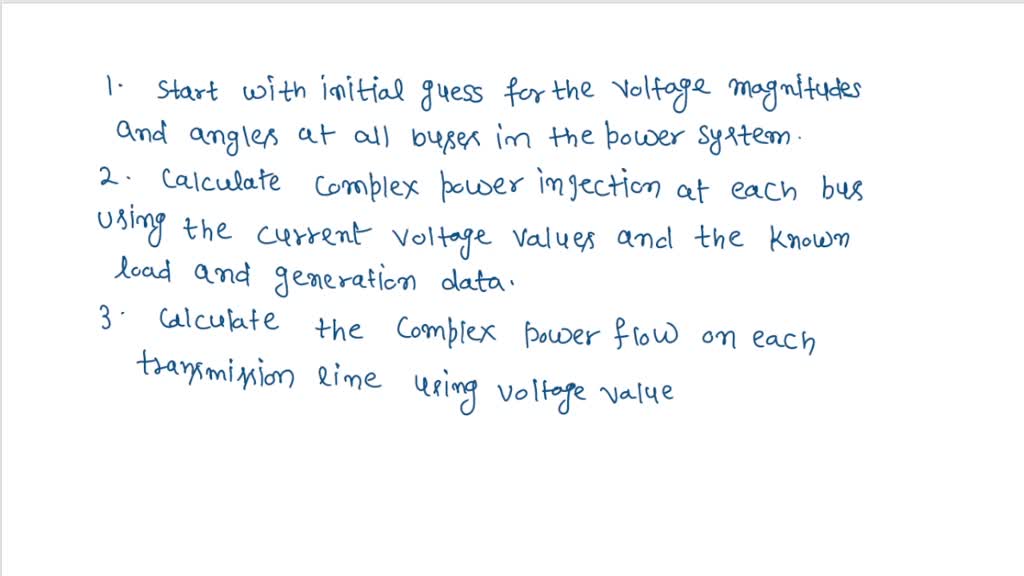 1. Start with initial guess for the voltage magnitudes
and angles at all buses in the power system.
2. Calculate complex power injection at each bus
using the current voltage values and the known
load and generation data.
3. Calculate the complex power flow on each
transmission line using voltage value